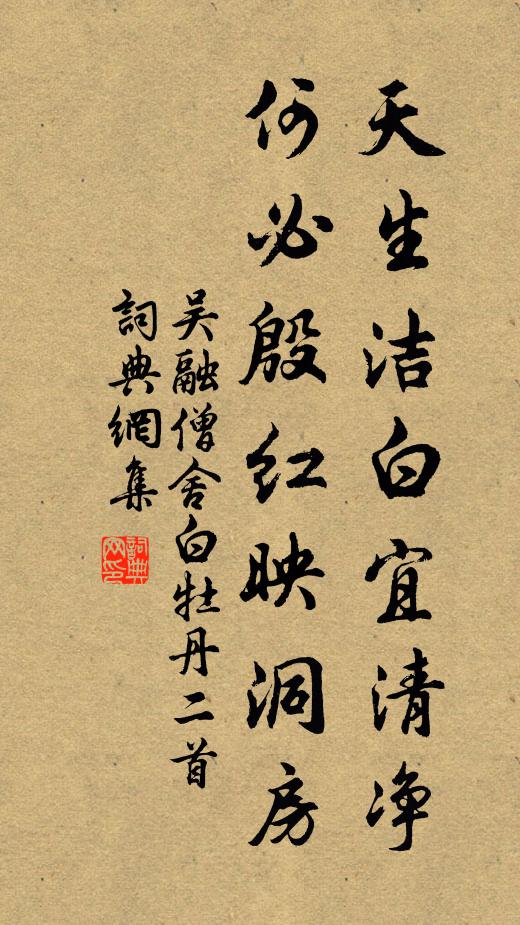 天生洁白宜清净
何必殷红映洞房
吴融僧舍白牡丹二首
詞典網集
詞典
网印